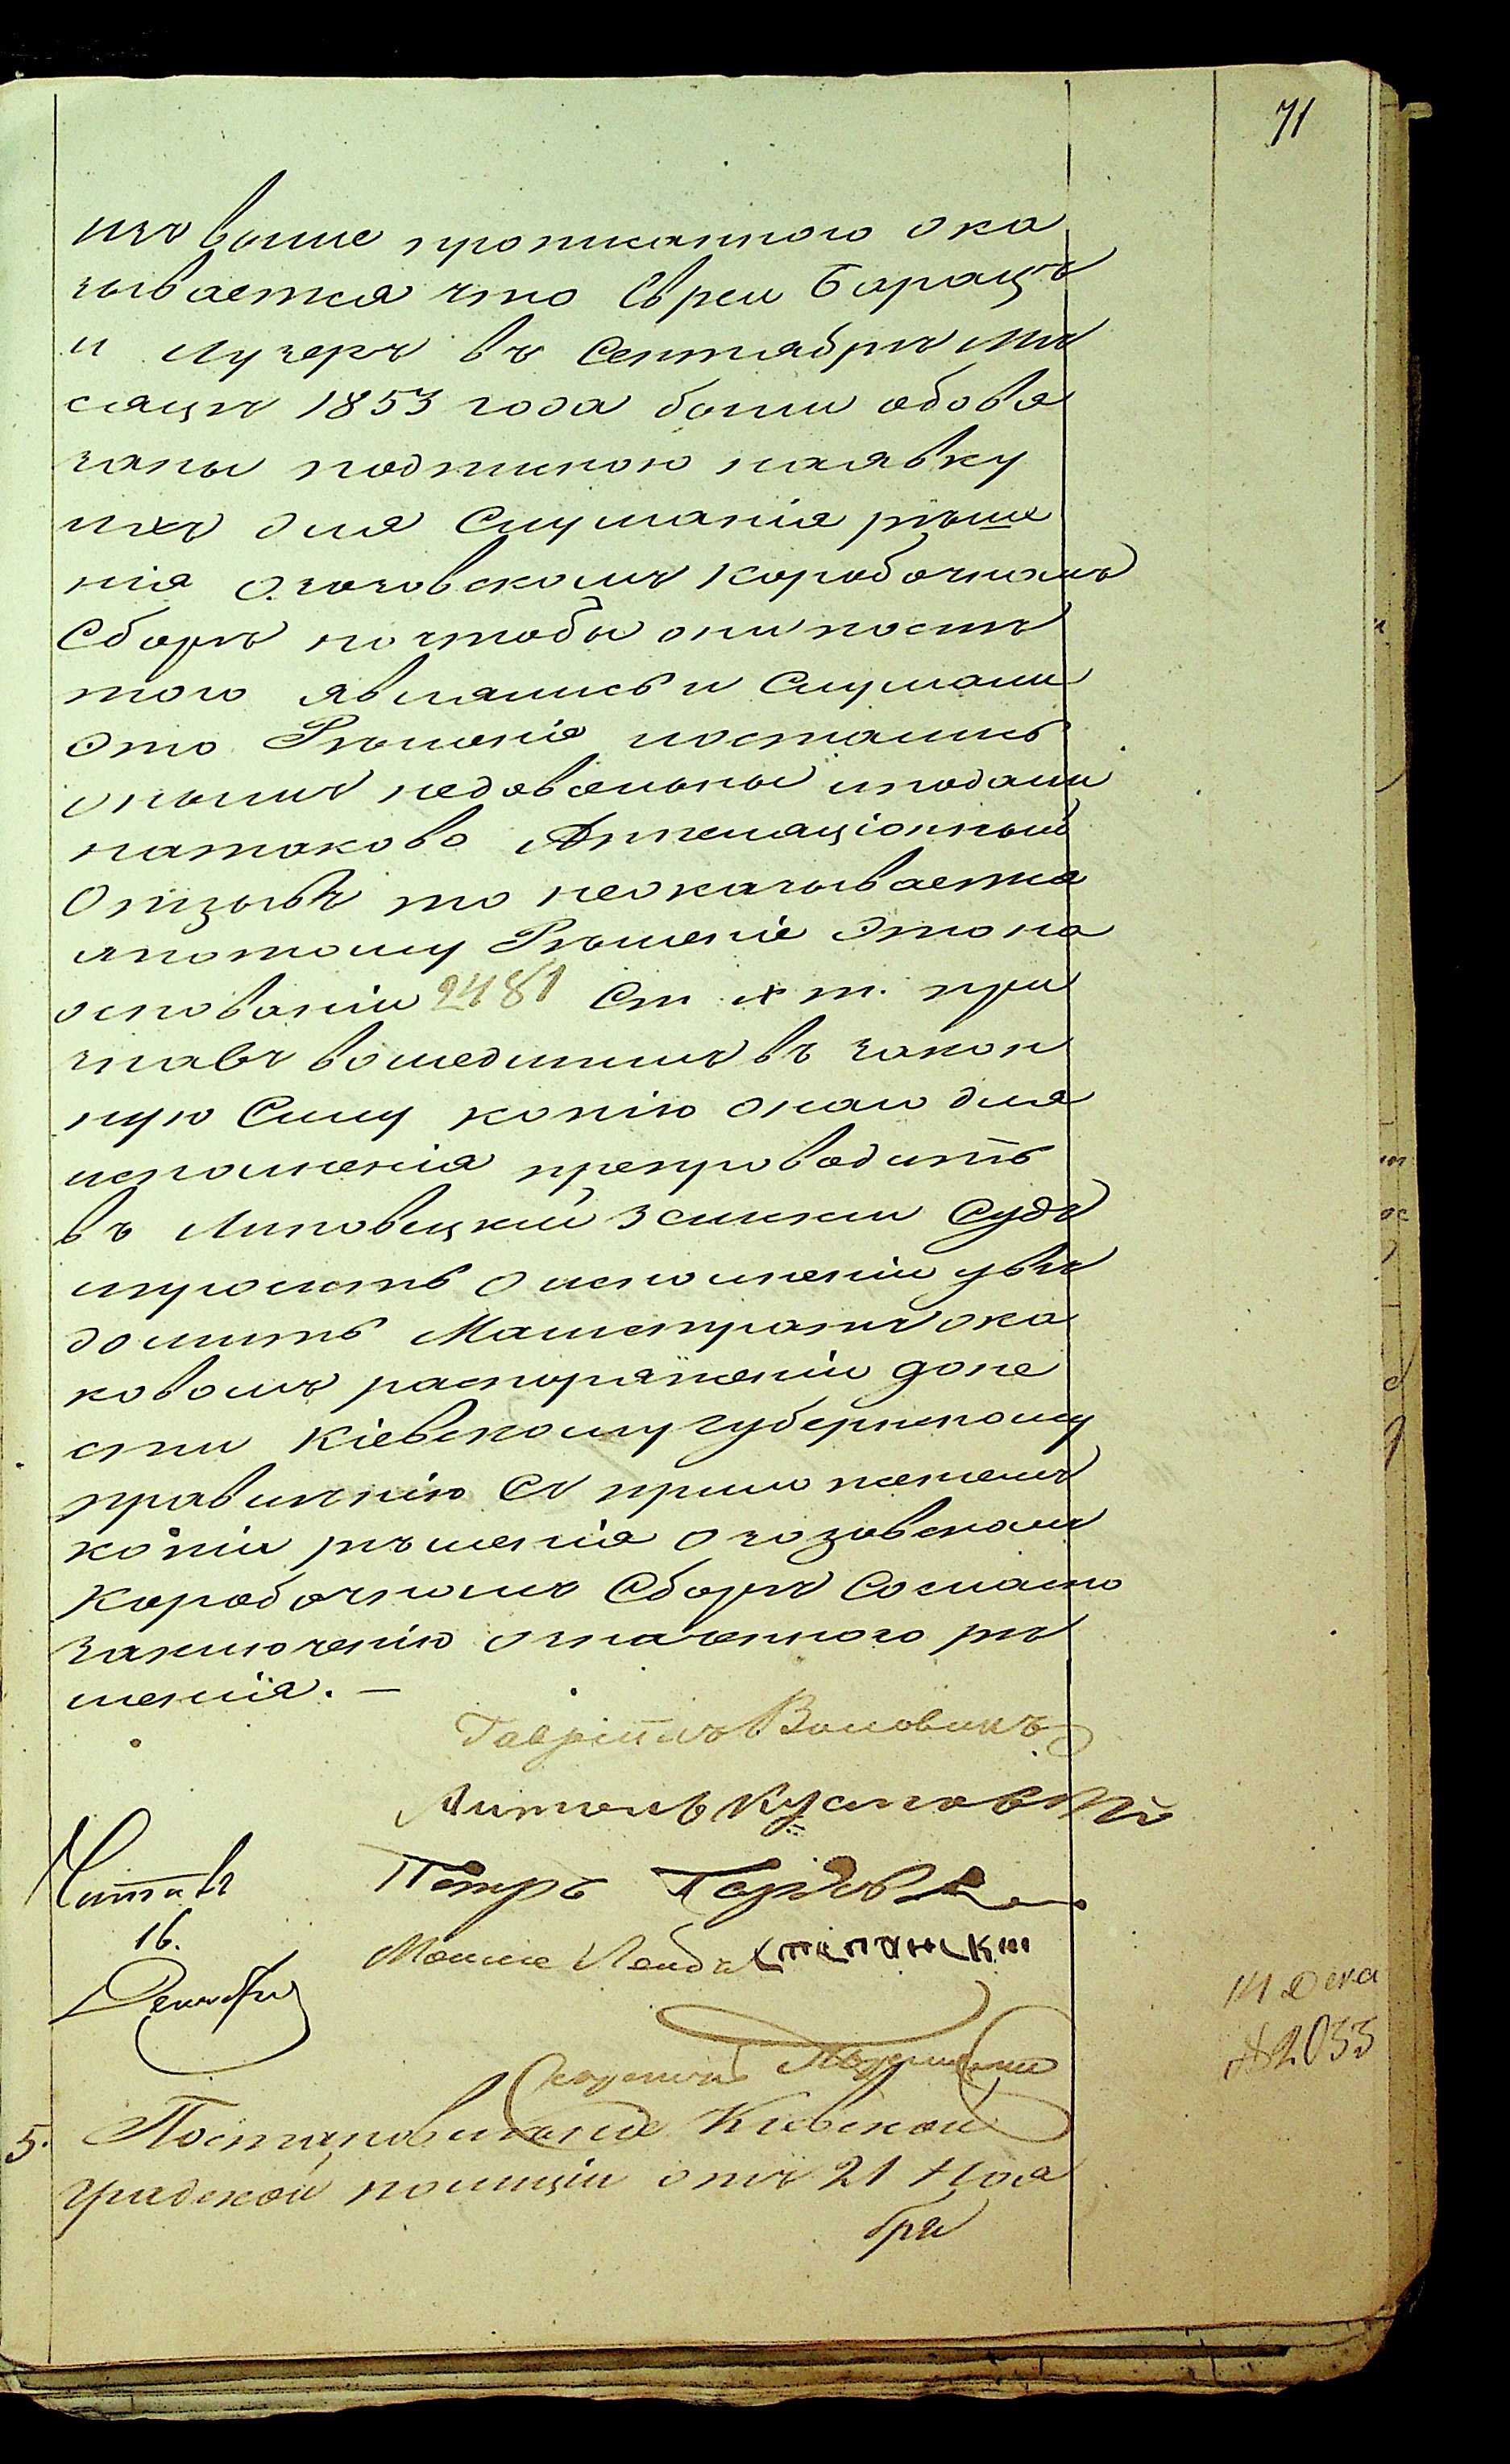 71
изъ выше прописанного ока
зывается что Евреи Барацъ
и Лузеръ въ Сентябрѣ мѣ
сяцѣ 1853 года были обовя
заны подпискою наявку
ихъ для Слушанія рѣше
нія о зозовскомъ Коробочномъ
Сборѣ но чтобы они послѣ
того являлись и Слушали
Это Рѣшеніе иостались
онымъ недовольны иподали
натаково Аппеляціонный
Отзывъ то неоказывается
ипотому Рѣшеніе Это на
основаніи 2481 Ст. х т. при
знавъ вошедшимъ въ закон
ную Силу копію онаго для
исполненія препроводить
въ Липовецкій Земскій Судъ
ипросить о исполненіи увѣ
домить Магистратъ ока
ковомъ распоряженіи доне
сти Кіевскому губернскому
правленію Съ приложеніемъ
копіи рѣшенія о зозовскомъ
Коробочномъ Сборѣ Согласно
заключенію означенного рѣ
шенія. —
Гавріилъ Воловикъ
Антонъ
Петръ
Мошко Лейба
Читалъ
16.
Декабря
14 Дека
№ 2033
Секретарь
5. Постановленіе Кіевской
градской полиціи отъ 21 Ноя
бря